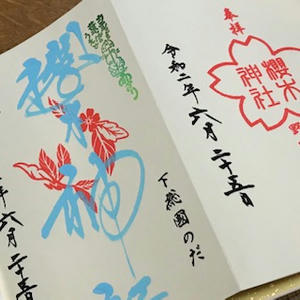 奉拝
櫻木
神社
令和二年六月二十五日
下総國のだ
櫻木神社
年六月二十五日